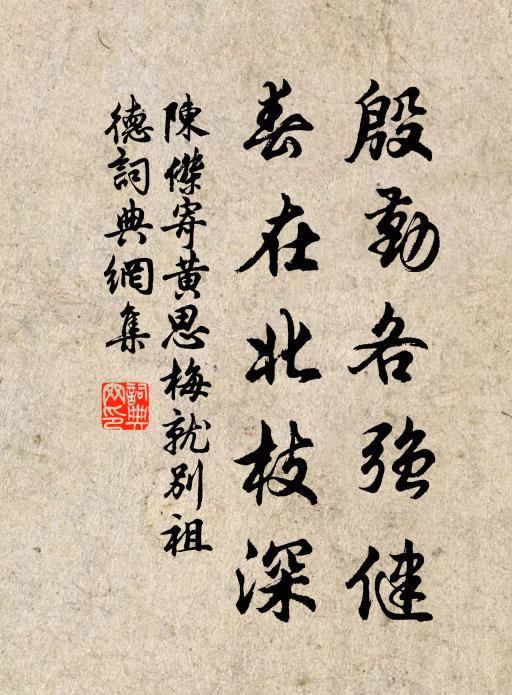 殷勤各強健
春在北枝深
陳傑寄黃思梅就別祖
德詞典網集
詞典網印